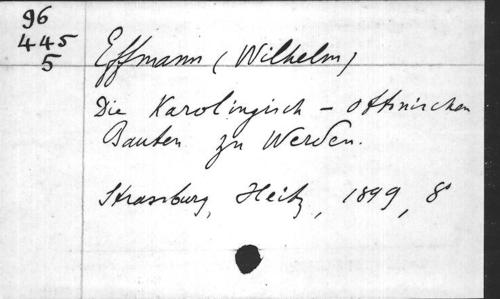 96
445
5
Effmann (Wilhelm)
Die Karolingisch - ottonischen
Bauten zu Werden.
Strassburg, Heitz, 1899, 8°